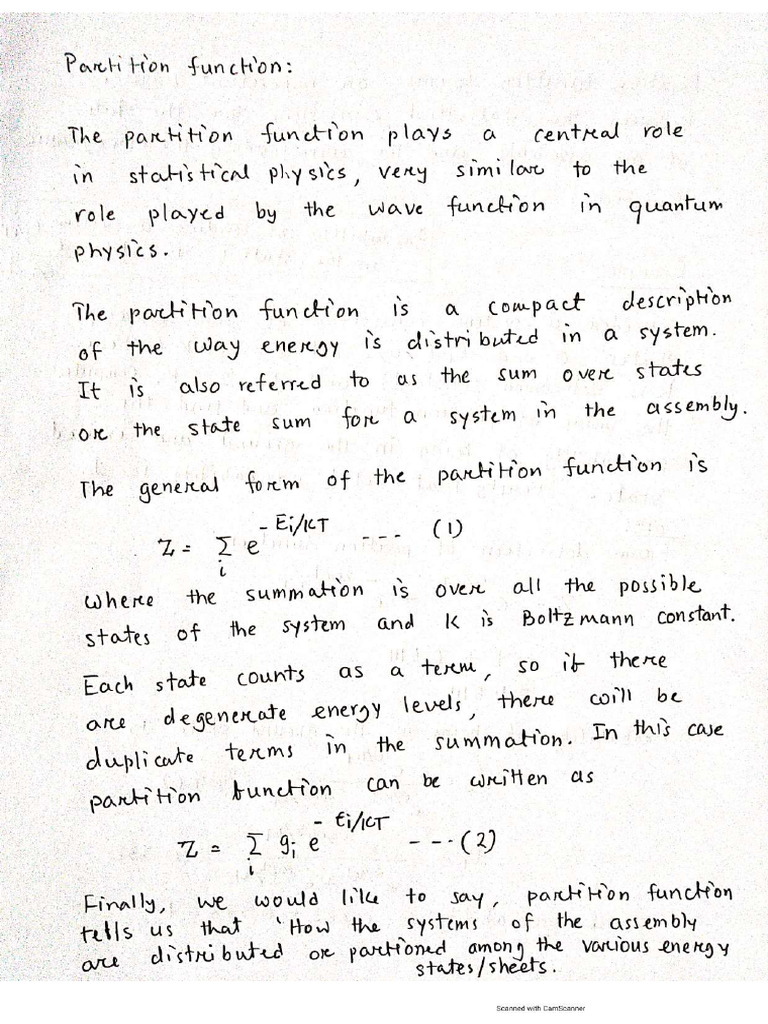 Partition function:
The partition function plays a central role
in statistical physics, very similar to the
role played by the wave function in quantum
physics.
The partition function is a compact description
of the way energy is distributed in a system.
It is also referred to as the sum over states
or the state sum for a system in the assembly.
The general form of the partition function is
Z = Σ_i e^{-Ei/KT} --- (1)
where the summation is over all the possible
states of the system and K is Boltzmann constant.
Each state counts as a term, so if there
are degenerate energy levels, there will be
duplicate terms in the summation. In this case
partition function can be written as
Z = Σ_i g_i e^{-Ei/KT} ---(2)
Finally, we would like to say, partition function
tells us that 'How the systems of the assembly
are distributed or partioned among the various energy
states/sheets.
Scanned with CamScanner